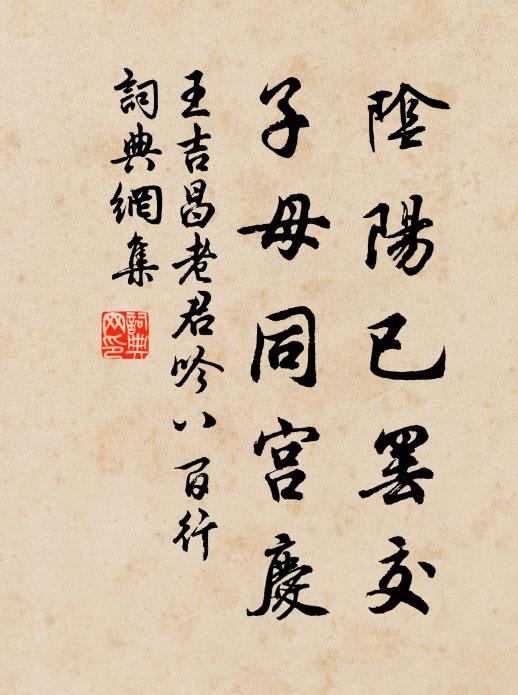 陰陽已罷交
子母同宮慶
王吉昌老君吟八百行
詞典網集
詞典網印